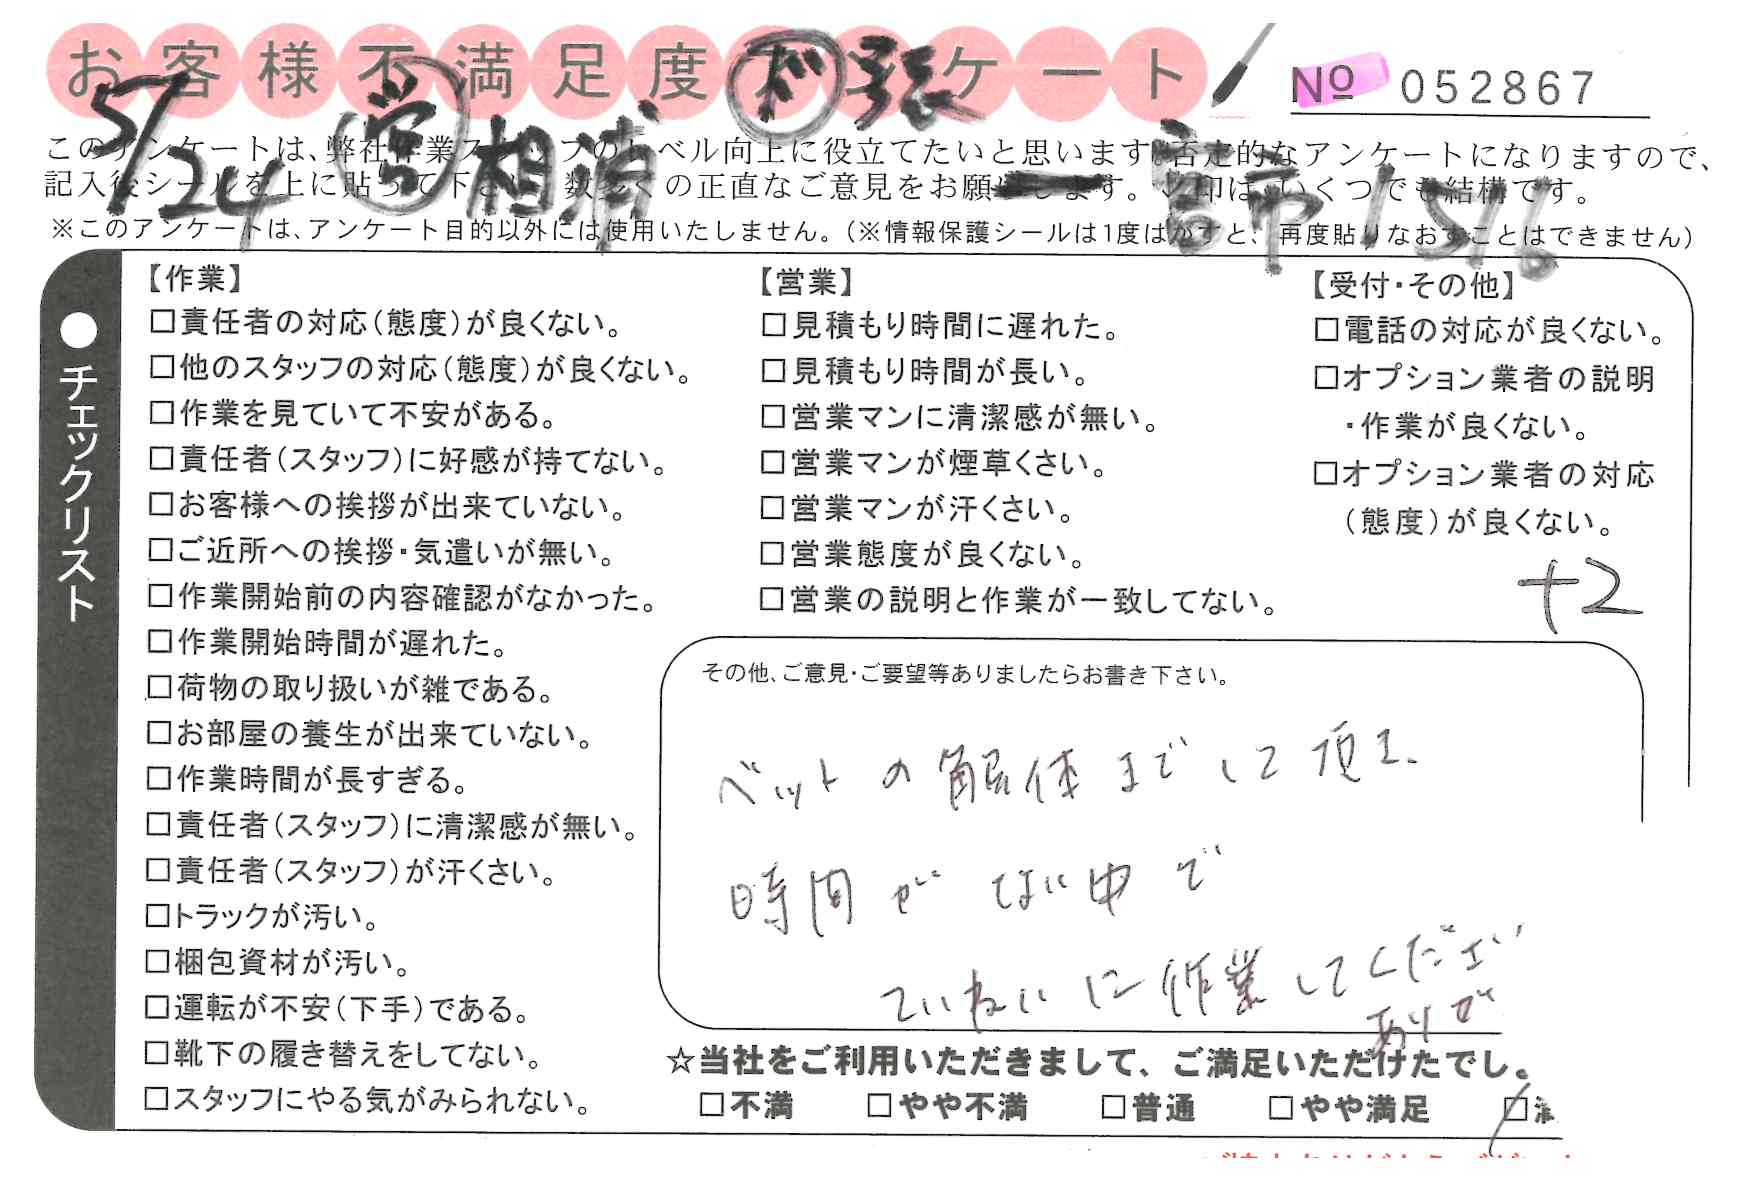 お客様不満足度アンケート
No 052867
5/24 営 相浦 ド 張
一高市
このアンケートは、弊社作業スタッフのレベル向上に役立てたいと思います。否定的なアンケートになりますので、
記入後シールを上に貼って下さい。数多くの正直なご意見をお願いします。レ印は、いくつでも結構です。
※このアンケートは、アンケート目的以外には使用いたしません。（※情報保護シールは1度はがすと、再度貼りなおすことはできません）
●チェックリスト
【作業】
□責任者の対応（態度）が良くない。
□他のスタッフの対応（態度）が良くない。
□作業を見ていて不安がある。
□責任者（スタッフ）に好感が持てない。
□お客様への挨拶が出来ていない。
□ご近所への挨拶・気遣いが無い。
□作業開始前の内容確認がなかった。
□作業開始時間が遅れた。
□荷物の取り扱いが雑である。
□お部屋の養生が出来ていない。
□作業時間が長すぎる。
□責任者（スタッフ）に清潔感が無い。
□責任者（スタッフ）が汗くさい。
□トラックが汚い。
□梱包資材が汚い。
□運転が不安（下手）である。
□靴下の履き替えをしてない。
□スタッフにやる気がみられない。
【営業】
□見積もり時間に遅れた。
□見積もり時間が長い。
□営業マンに清潔感が無い。
□営業マンが煙草くさい。
□営業マンが汗くさい。
□営業態度が良くない。
□営業の説明と作業が一致してない。
【受付・その他】
□電話の対応が良くない。
□オプション業者の説明
・作業が良くない。
□オプション業者の対応
（態度）が良くない。
+2
その他、ご意見・ご要望等ありましたらお書き下さい。
ベットの解体までして頂き
時間がない中で
ていねいに作業してくださり
ありが
☆当社をご利用いただきまして、ご満足いただけたでし
□不満 □やや不満 □普通 □やや満足 □満